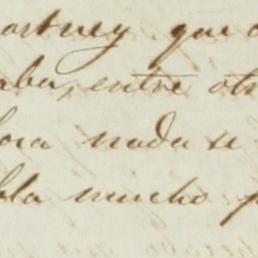 artney que
aba, entre otr
hora nada se
bla mucho p